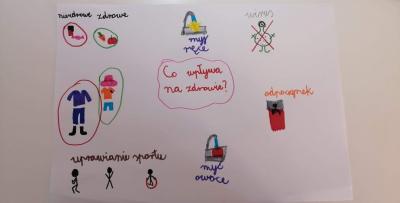 niezdrowe zdrowe
myj
ręce
wirus
Co wpływa
na zdrowie?
odpoczynek
uprawianie sportu
myć
owoce